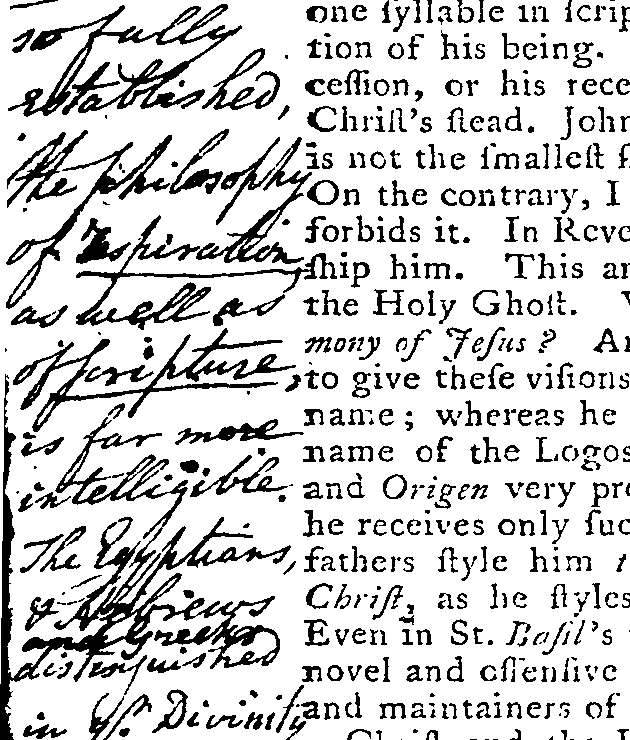 so fully
established,
the philosophy
of Inspiration,
as well as
of Scripture,
is far more
intelligible.
The Egyptians,
& Hebrews
and Greeks
distinguished
in yͬ. Divinity
one ſyllable in ſcrip
tion of his being.
ceſſion, or his rece
Chriſt's ſtead. John
is not the ſmalleſt ſ
On the contrary, I
forbids it. In Reve
ſhip him. This an
the Holy Ghoſt.
mony of Jeſus? An
to give theſe viſions
name; whereas he
name of the Logos
and Origen very pro
he receives only ſuc
fathers ſtyle him t
Chriſt, as he ſtyles
Even in St. Baſil's
novel and offenſive
and maintainers of
Chriſt and the